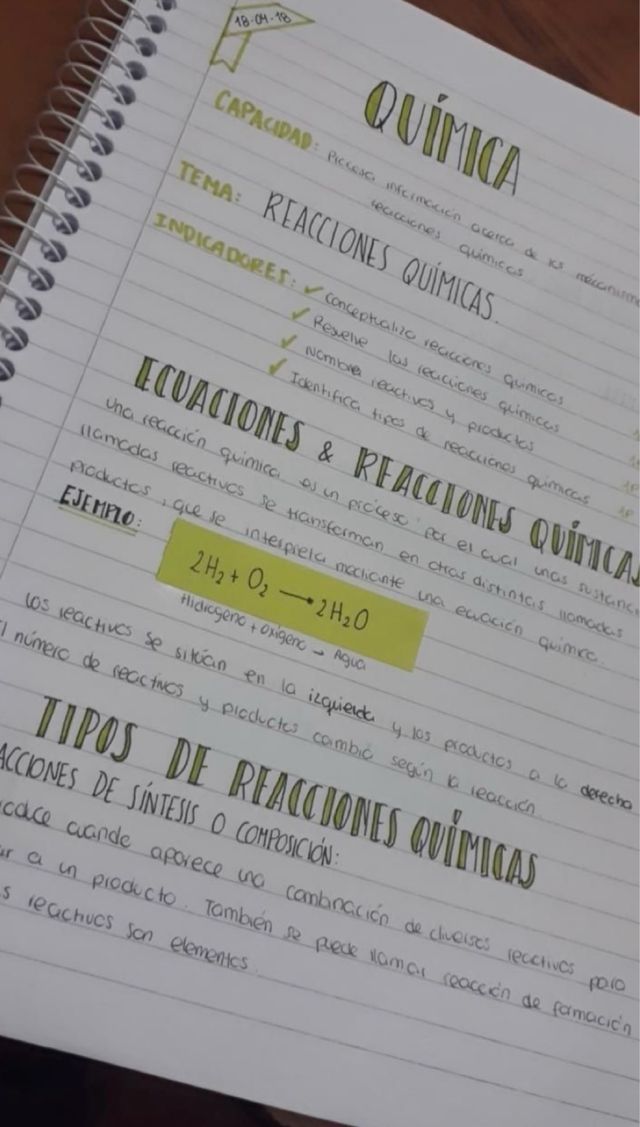 18-04-18
QUÍMICA
CAPACIDAD: Procesa información acerca de los mecanism
reacciones químicas
TEMA: REACCIONES QUÍMICAS.
INDICADORES: ✓ Conceptualiza reacciones químicas
✓ Resuelve las reacciones químicas
✓ Nombra reactivos y productos
✓ Identifica tipos de reacciones químicas 1P
ECUACIONES & REACCIONES QUÍMICA
Una reacción química es un proceso por el cual unas sustanc
llamadas reactivos se transforman en otras distintas llamadas
productos, que se interpreta mediante una ecuación química.
EJEMPLO:
2H₂ + O₂ → 2H₂O
Hidrógeno + Oxígeno → Agua
Los reactivos se sitúan en la izquierda y los productos a la derecha
l número de reactivos y productos cambia según la reacción.
TIPOS DE REACCIONES QUÍMICAS
ACCIONES DE SÍNTESIS O COMPOSICIÓN:
cuando aparece una combinación de diversos reactivos para
ar a un producto. También se puede llamar reacción de formación
s reactivos son elementos.